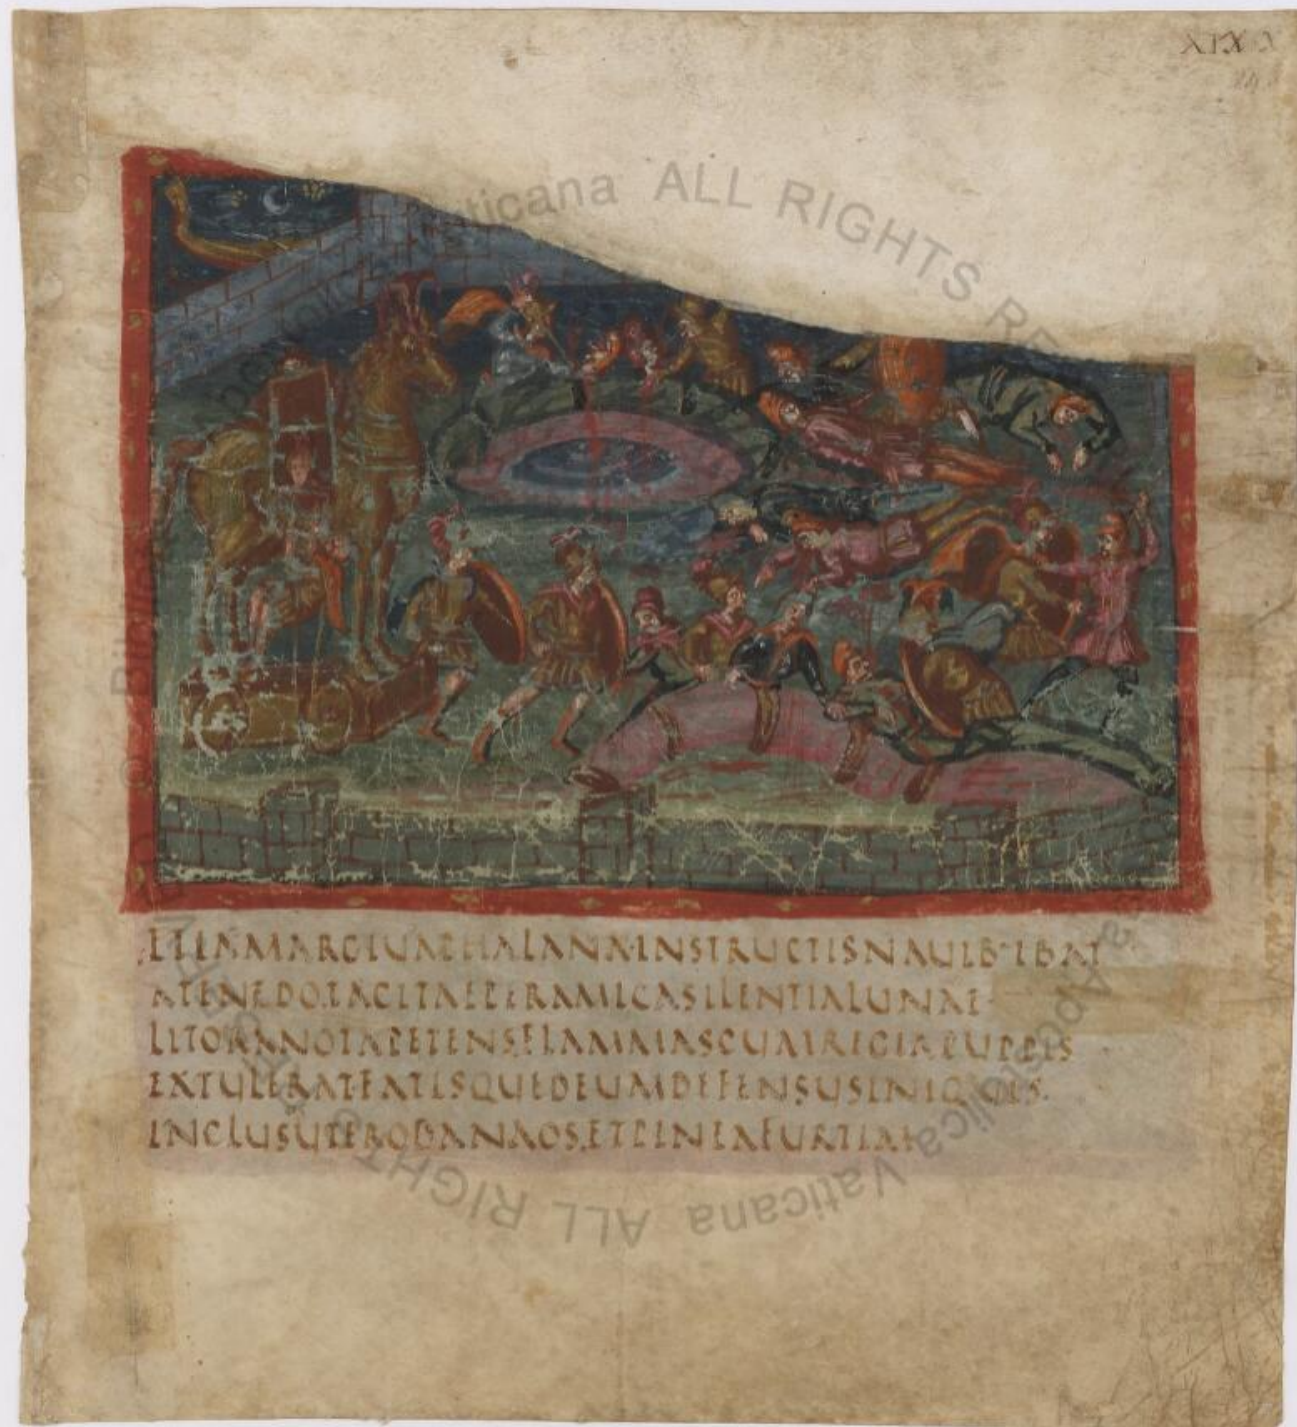 XIX
ETIAMARGIUAPHALANXINSTRUCTISNAUIB·IBAT
ATENEDO.TACITAEPERAMICASILENTIALUNAE·
LITORANOTAPETENS.FLAMMASCUMREGIAPUPPIS
EXTULERATFATISQUEDEUMDEFENSUSINIQUIS.
INCLUSUTERODANAOS.ETPINEAFURTIM
ticana ALL RIGHTS RE
Apostolica Vaticana ALL RIGHT